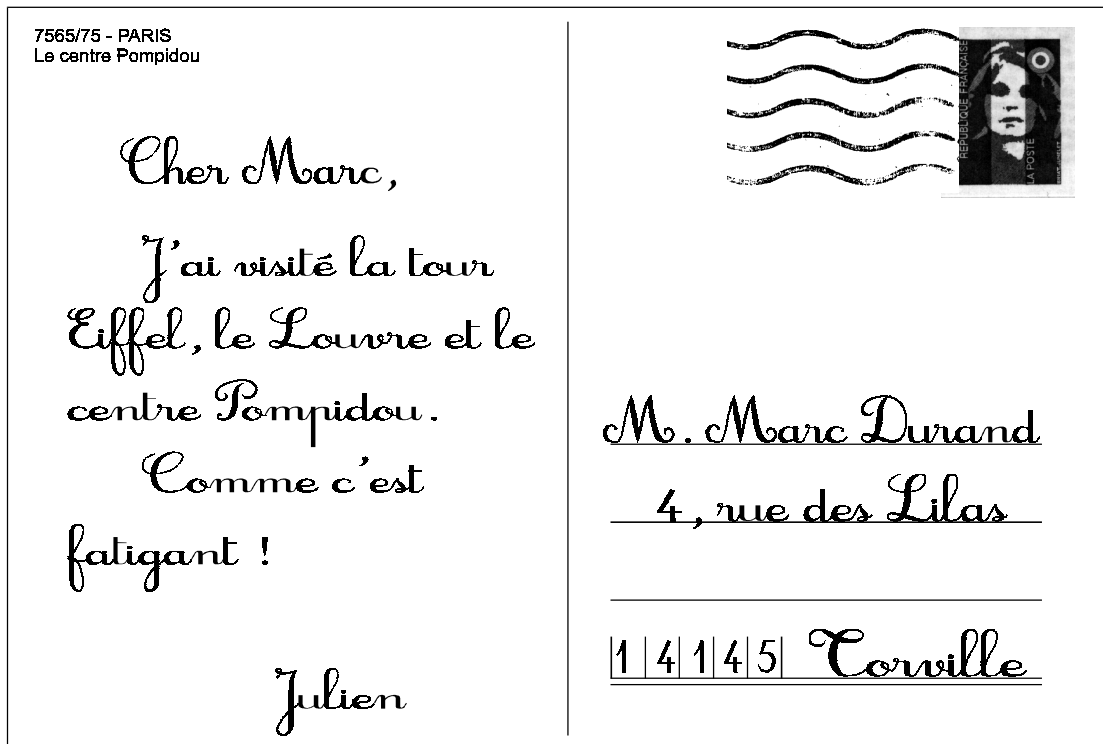 7565/75 - PARIS
Le centre Pompidou
Cher Marc,
J'ai visité la tour
Eiffel, le Louvre et le
centre Pompidou.
Comme c'est
fatigant !
Julien
REPUBLIQUE FRANÇAISE
LA POSTE
M. Marc Durand
4, rue des Lilas
14145 Torville